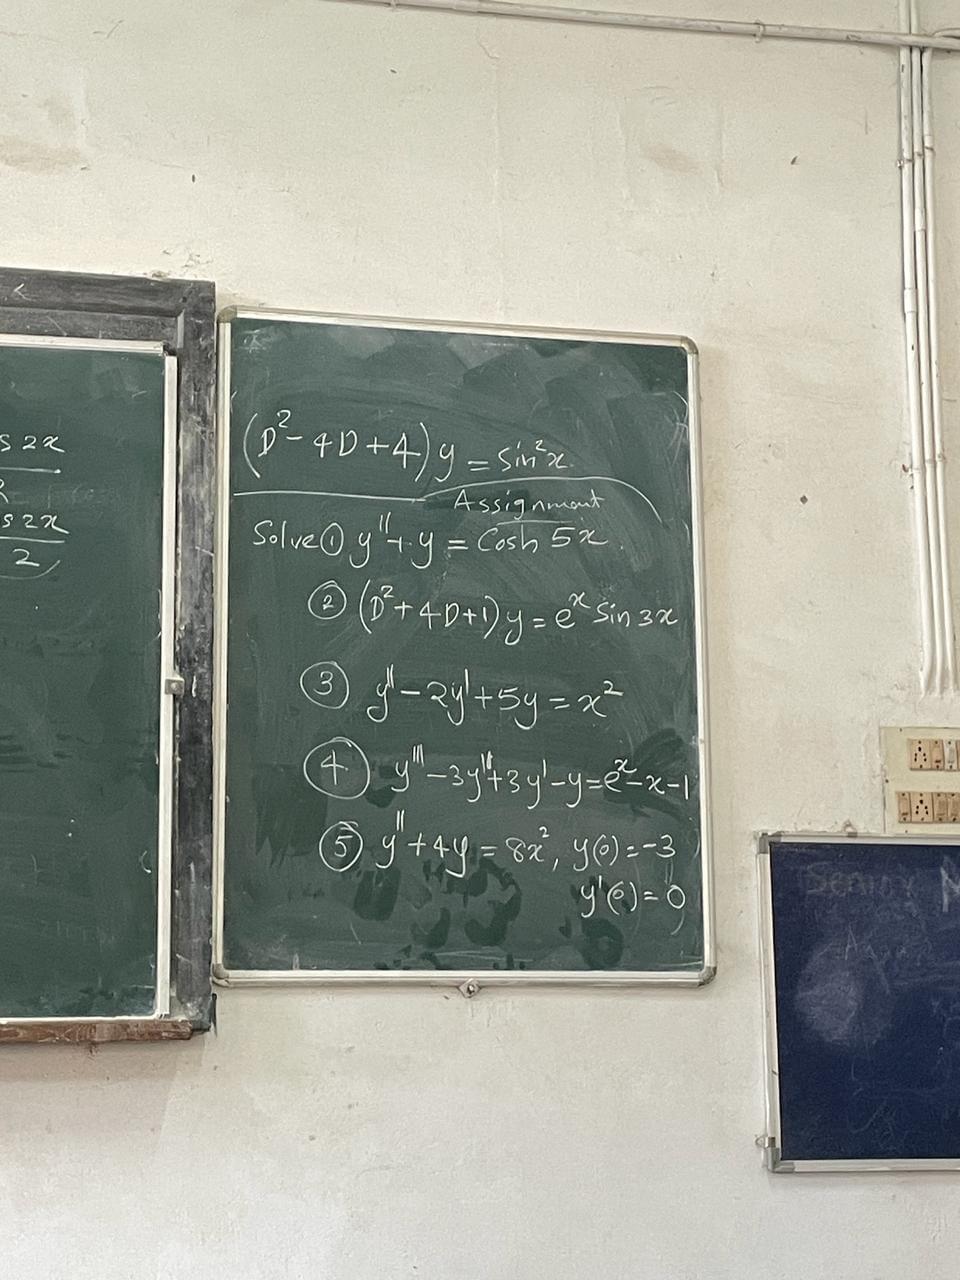 s 2x
s 2x
2
(D² - 4D + 4) y = Sin²x
Assignment
Solve ① y'' + y = Cosh 5x
② (D² + 4D + 1) y = eˣ Sin 3x
③ y'' - 2y' + 5y = x²
④ y''' - 3y'' + 3y' - y = eˣ - x - 1
⑤ y'' + 4y = 8x², y(0) = -3
y'(0) = 0
Senior